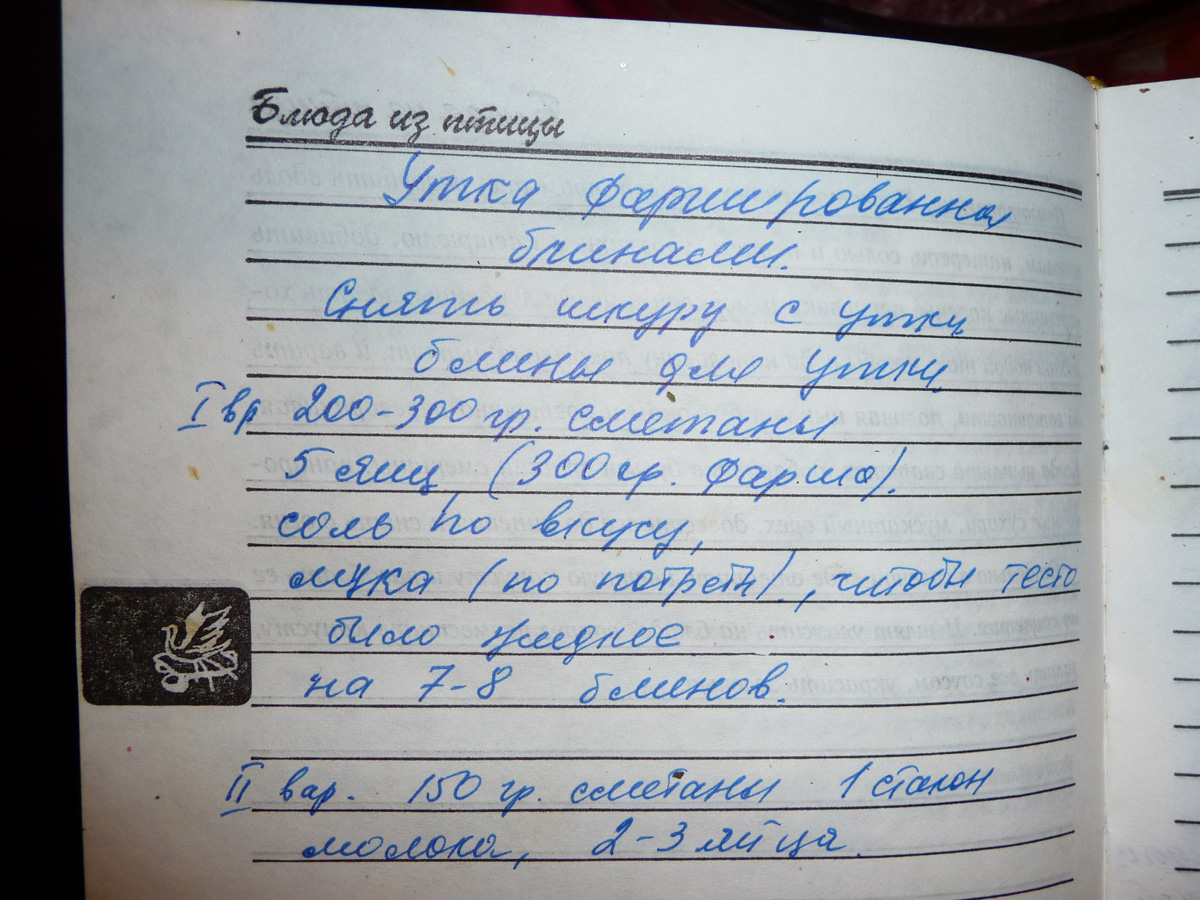 Блюда из птицы
Утка фаршированная
блинами.
Снять шкуру с утки
блины для утки
I вр 200-300 гр. сметаны
5 яиц (300 гр. фарша).
соль по вкусу,
мука (по потребн)., чтобы тесто
было жидкое
на 7-8 блинов.
II вар. 150 гр. сметаны 1 стакан
молока, 2-3 яйца.